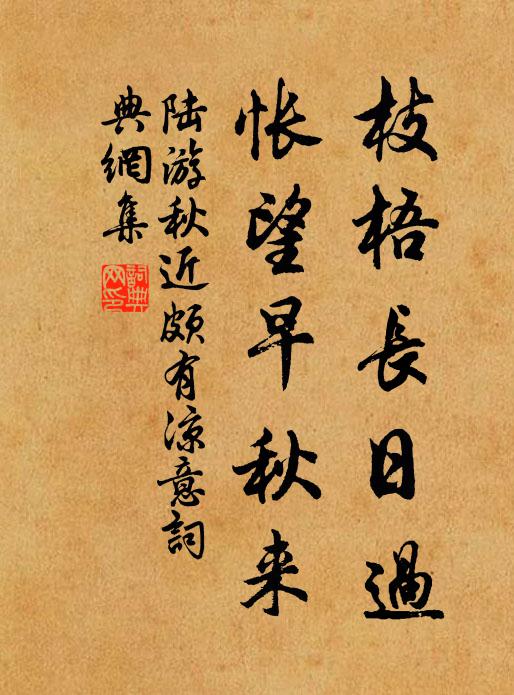 枝梧長日過
悵望早秋来
陆游秋近颇有凉意詞
典網集
詞典網印